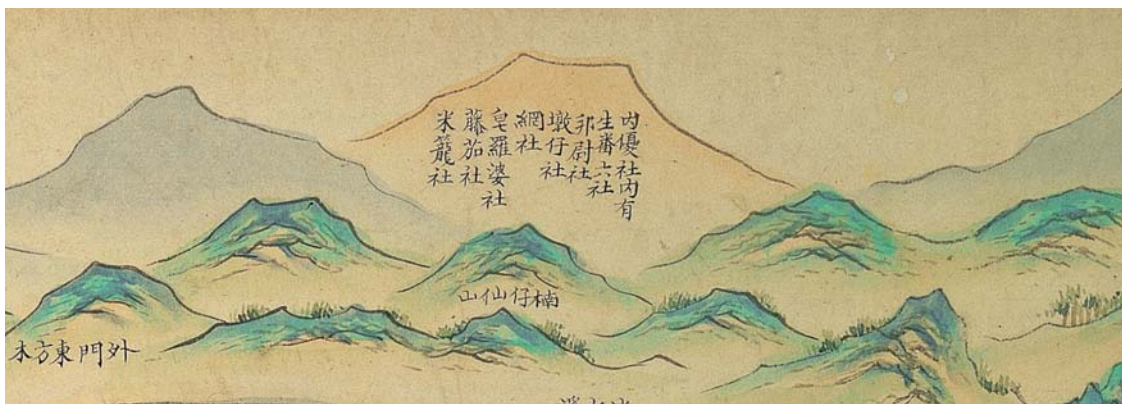 內優社內有
生番六社
邦尉社
墩仔社
網社
皂羅婆社
藤茄社
米籠社
楠仔仙山
外門東方木